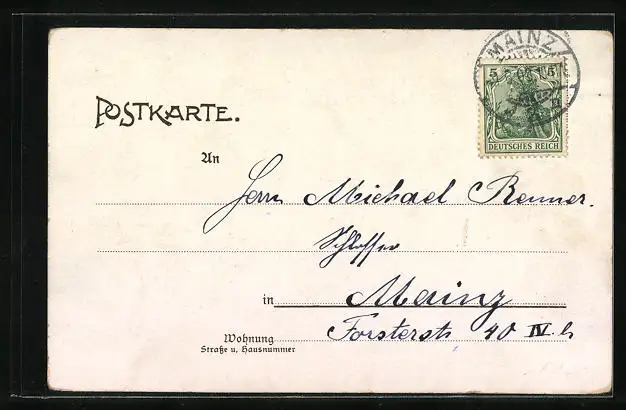 MAINZ
5 5
DEUTSCHES REICH
POSTKARTE.
An
Herrn Michael Renner.
Schlosser
in Mainz
Wohnung Forsterstr 40 IV. h
Straße u. Hausnummer